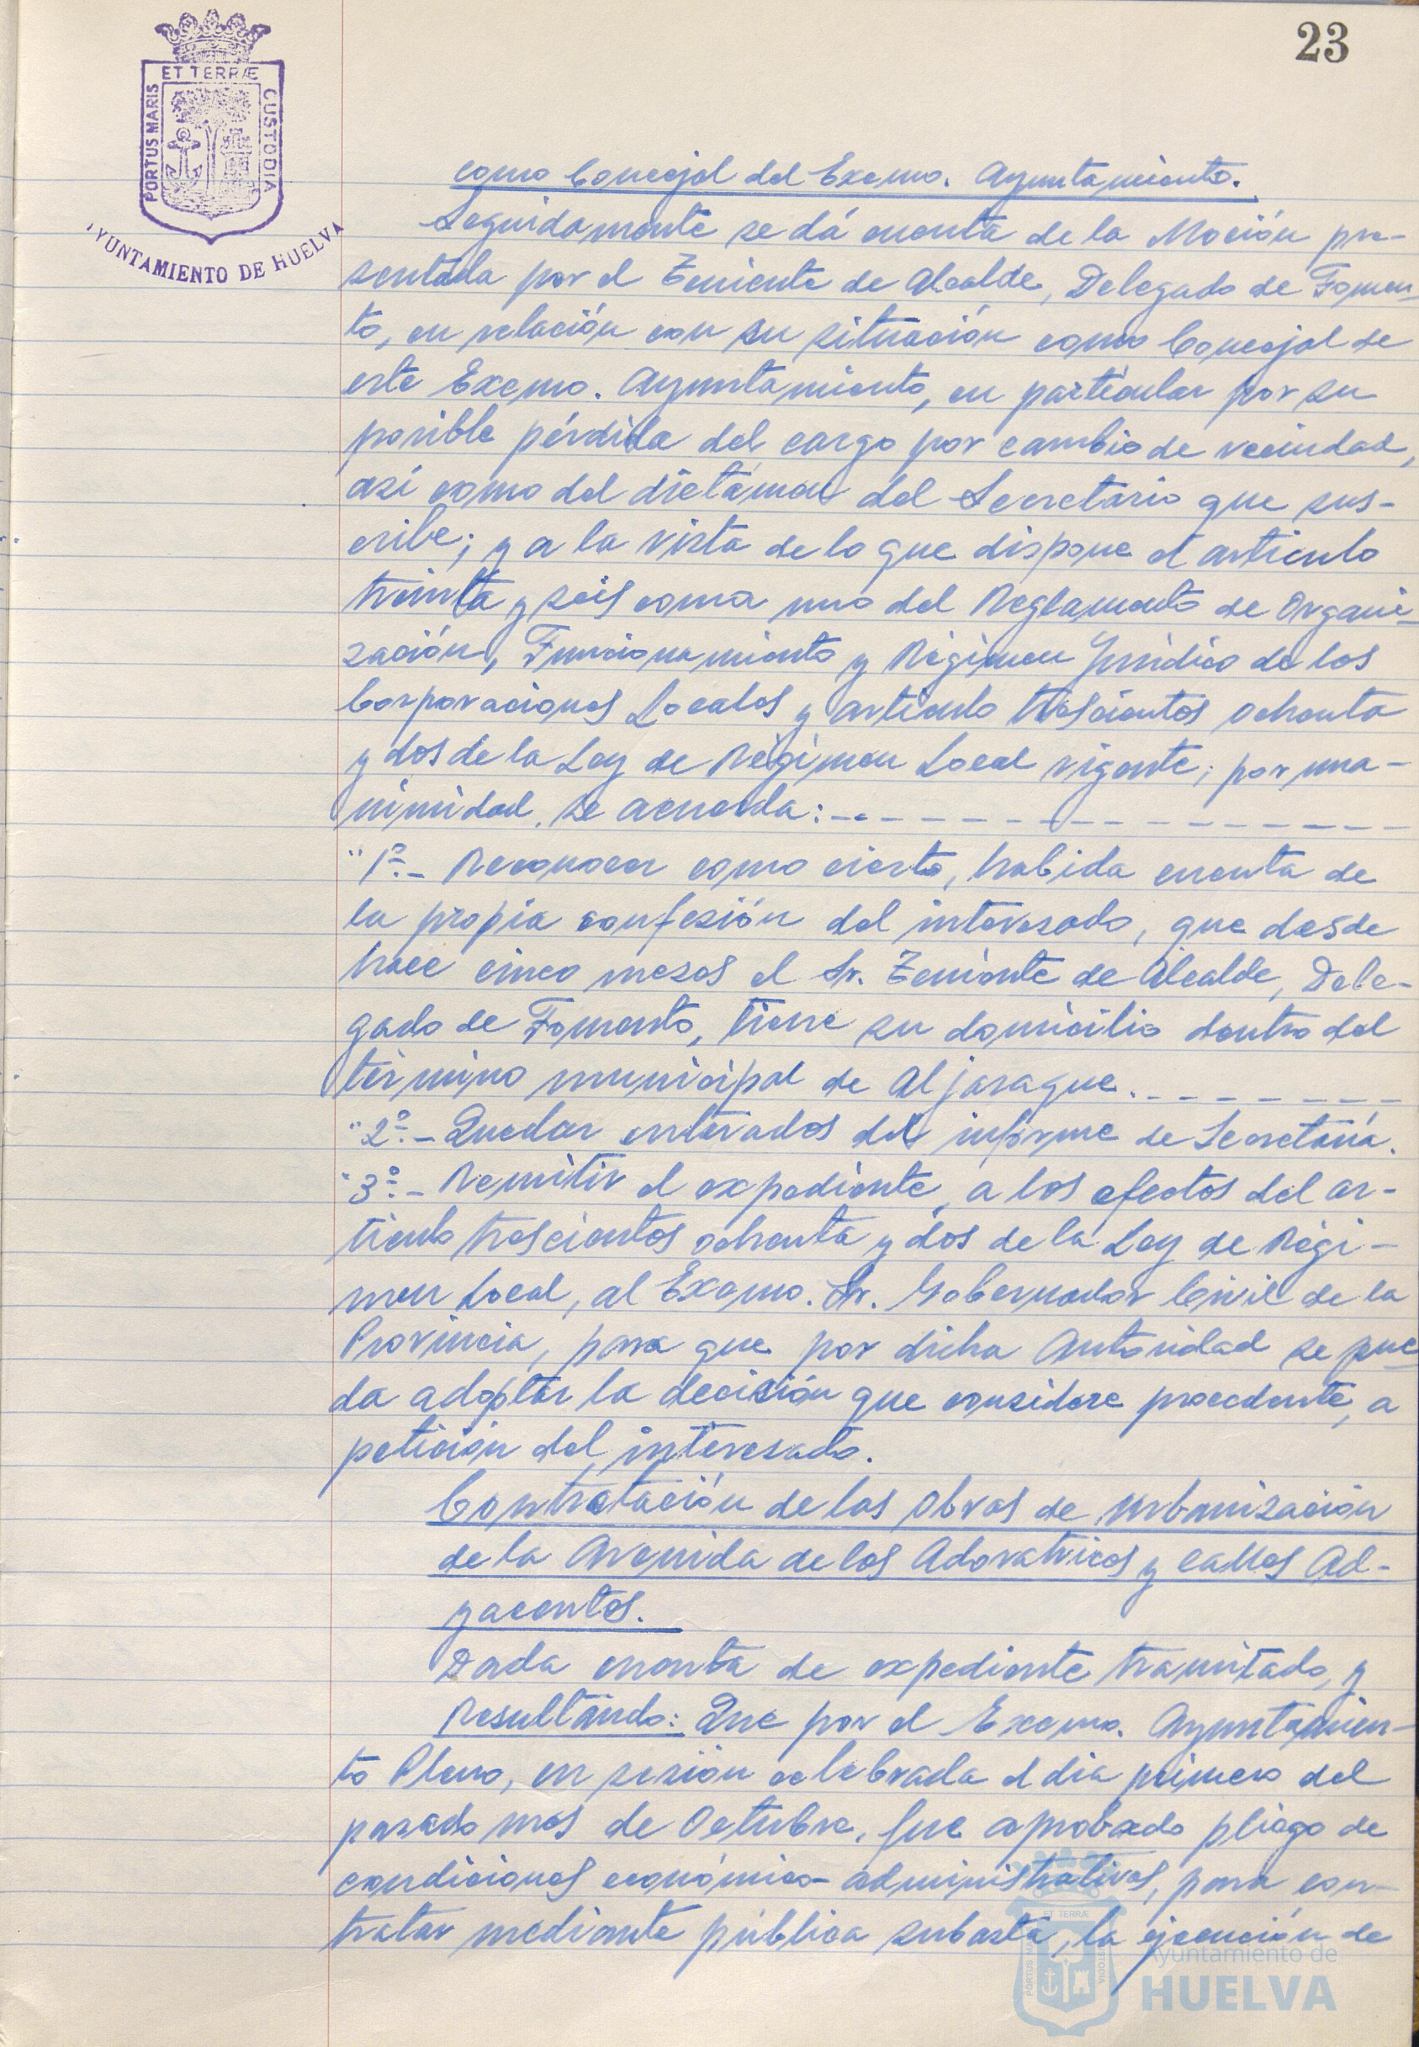 23
ET TERRÆ
PORTUS MARIS
CUSTODIA
AYUNTAMIENTO DE HUELVA
como Concejal del Excmo. Ayuntamiento.
Seguidamente se dá cuenta de la Moción pre-
sentada por el Teniente de Alcalde, Delegado de Fomen-
to, en relación con su situación como Concejal de
este Excmo. Ayuntamiento, en particular por su
posible pérdida del cargo por cambio de vecindad,
así como del dictámen del Secretario que sus-
cribe; y a la vista de lo que dispone el artículo
treinta y seis coma uno del Reglamento de Organi-
zación, Funcionamiento y Régimen Jurídico de las
Corporaciones Locales y artículo trescientos ochenta
y dos de la Ley de Régimen Local vigente; por una-
nimidad, se acuerda:
"1º.- Reconocer como cierto, habida cuenta de
la propia confesión del interesado, que desde
hace cinco meses el Sr. Teniente de Alcalde, Dele-
gado de Fomento, tiene su domicilio dentro del
término municipal de Aljaraque.
"2º.- Quedar enterados del informe de Secretaría.
"3º.- Remitir el expediente, a los efectos del ar-
tículo trescientos ochenta y dos de la Ley de Régi-
men Local, al Excmo. Sr. Gobernador Civil de la
Provincia, para que por dicha Autoridad se pue-
da adoptar la decisión que considere procedente, a
petición del interesado.
Contratación de las Obras de Urbanización
de la Avenida de las Adoratrices y calles Ad-
yacentes.
Dada cuenta de expediente tramitado, y
Resultando: Que por el Excmo. Ayuntamien-
to Pleno, en sesión celebrada el dia primero del
pasado mes de Octubre, fue aprobado pliego de
condiciones económico-administrativas, para con-
tratar mediante pública subasta, la ejecución de
ET TERRÆ
PORTUS MARIS
CUSTODIA
Ayuntamiento de
HUELVA